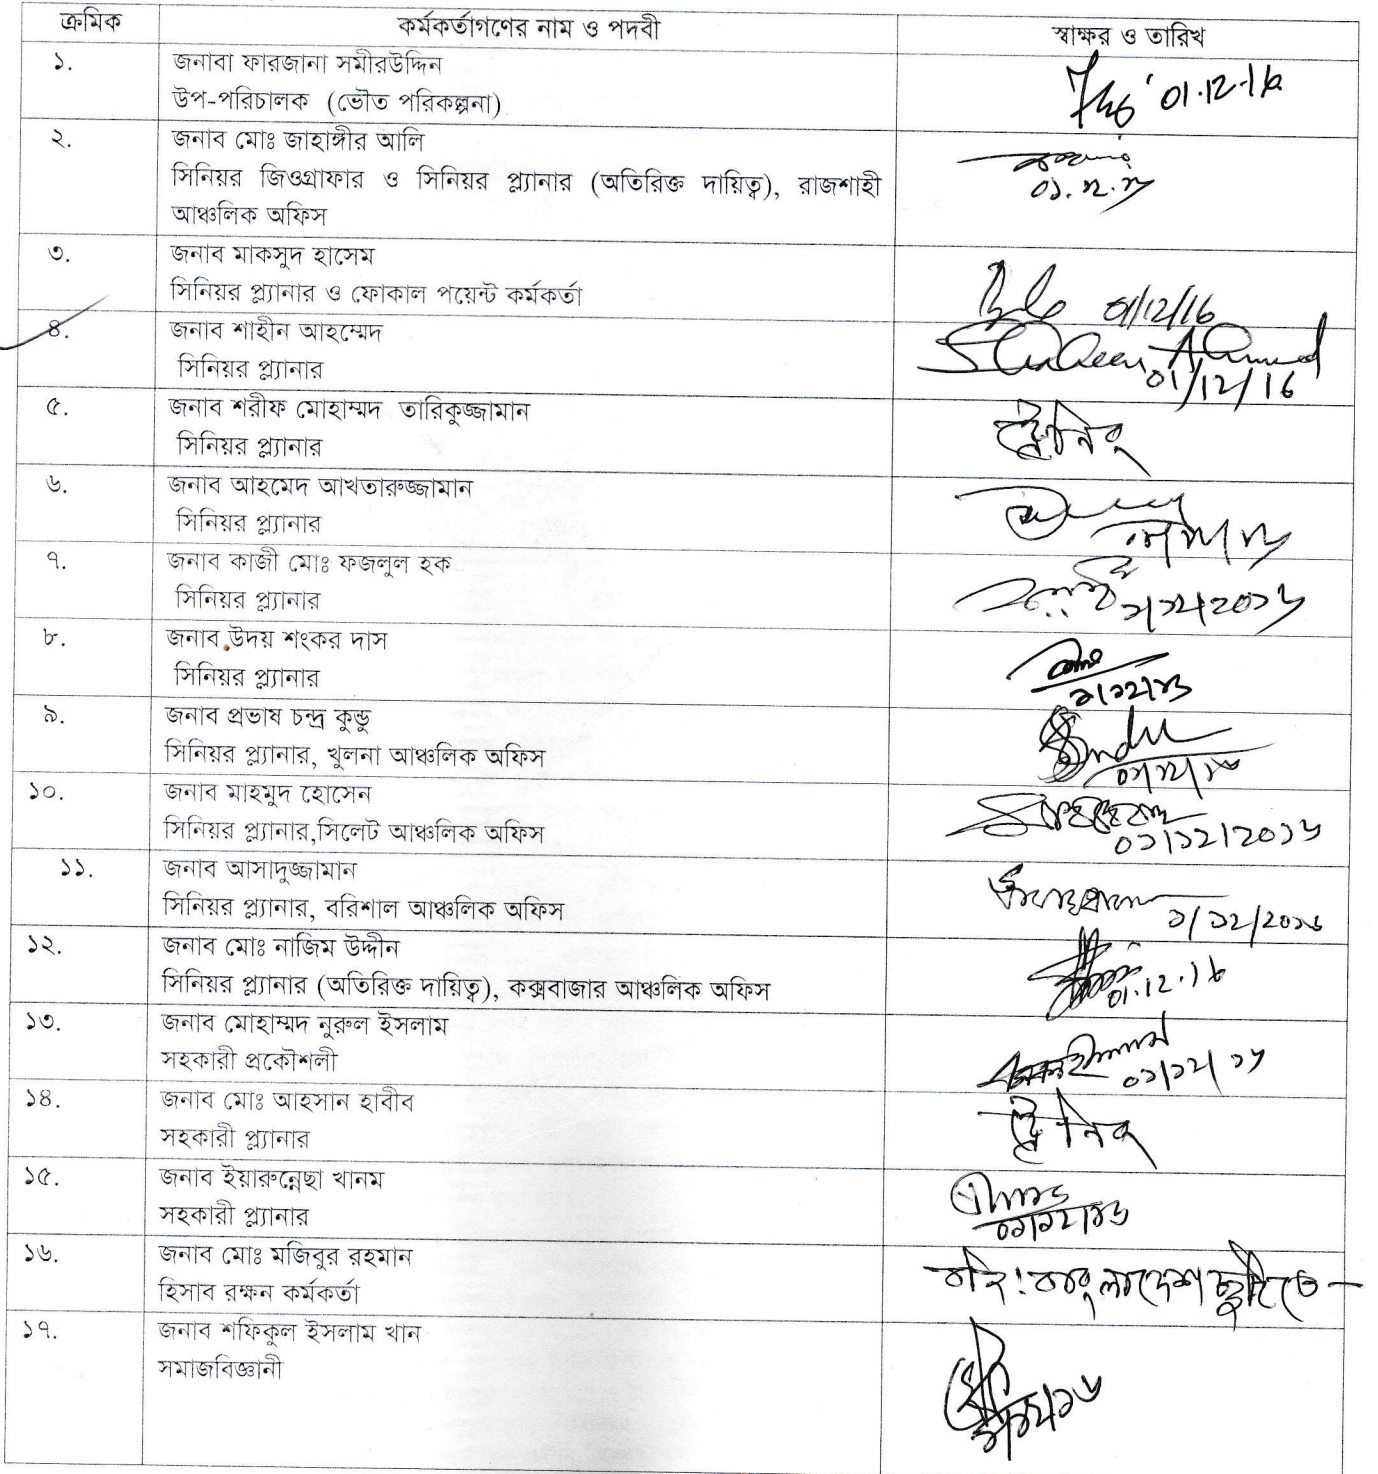 ক্রমিক কর্মকর্তাগণের নাম ও পদবী স্বাক্ষর ও তারিখ
১. জনাবা ফারজানা সমীরউদ্দিন
উপ-পরিচালক (ভৌত পরিকল্পনা)
01.12.16
২. জনাব মোঃ জাহাঙ্গীর আলি
সিনিয়র জিওগ্রাফার ও সিনিয়র প্ল্যানার (অতিরিক্ত দায়িত্ব), রাজশাহী
আঞ্চলিক অফিস
০১.১২.১৬
৩. জনাব মাকসুদ হাসেম
সিনিয়র প্ল্যানার ও ফোকাল পয়েন্ট কর্মকর্তা
01/12/16
৪. জনাব শাহীন আহম্মেদ
সিনিয়র প্ল্যানার
Shaheen Ahmed
01/12/16
৫. জনাব শরীফ মোহাম্মদ তারিকুজ্জামান
সিনিয়র প্ল্যানার
৬. জনাব আহমেদ আখতারুজ্জামান
সিনিয়র প্ল্যানার
৭. জনাব কাজী মোঃ ফজলুল হক
সিনিয়র প্ল্যানার
১/১২/২০১৬
৮. জনাব উদয় শংকর দাস
সিনিয়র প্ল্যানার
১/১২/১৬
৯. জনাব প্রভাষ চন্দ্র কুন্ডু
সিনিয়র প্ল্যানার, খুলনা আঞ্চলিক অফিস
০১/১২/১৬
১০. জনাব মাহমুদ হোসেন
সিনিয়র প্ল্যানার,সিলেট আঞ্চলিক অফিস
০১/১২/২০১৬
১১. জনাব আসাদুজ্জামান
সিনিয়র প্ল্যানার, বরিশাল আঞ্চলিক অফিস
১/১২/২০১৬
১২. জনাব মোঃ নাজিম উদ্দীন
সিনিয়র প্ল্যানার (অতিরিক্ত দায়িত্ব), কক্সবাজার আঞ্চলিক অফিস
01.12.16
১৩. জনাব মোহাম্মদ নুরুল ইসলাম
সহকারী প্রকৌশলী
০১/১২/১৬
১৪. জনাব মোঃ আহসান হাবীব
সহকারী প্ল্যানার
১৫. জনাব ইয়ারুন্নেছা খানম
সহকারী প্ল্যানার
০১/১২/১৬
১৬. জনাব মোঃ মজিবুর রহমান
হিসাব রক্ষন কর্মকর্তা
১৭. জনাব শফিকুল ইসলাম খান
সমাজবিজ্ঞানী
১/১২/১৬